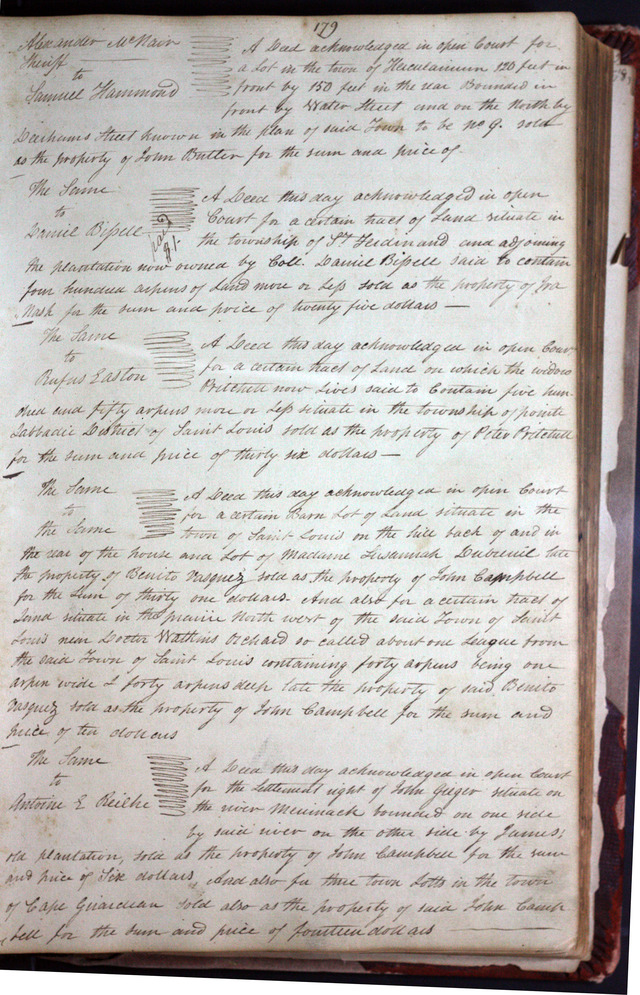 179
Alexander McNair
Sheriff
to
Samuel Hammond
A Deed acknowledged in open Court for
a Lot in the town of Herculaneum 120 feet in
front by 150 feet in the rear Bounded in
front by Water Street and on the North by
Street known in the plan of said Town to be no 9. sold
as the property of John Butler for the sum and price of
The Same
to
Daniel Bissell
paid
$1.
A Deed this day acknowledged in open
Court for a certain tract of Land situate in
the township of St Ferdinand and adjoining
the plantation now owned by Coll. Daniel Bissell said to contain
four hundred arpens of Land more or Less sold as the property of Ira
Nash for the sum and price of twenty five dollars —
The Same
to
Rufus Easton
A Deed this day acknowledged in open Cour
for a certain tract of Land on which the widow
Pritchett now Lives said to Contain five hun
dred and fifty arpens more or Less situate in the township of pointe
Labbadie District of Saint Louis sold as the property of Peter Pritchett
for the sum and price of thirty six dollars —
The Same
to
the Same
A Deed this day acknowledged in open Court
for a certain Barn Lot of Land situate in the
town of Saint Louis on the hill back of and in
the rear of the house and Lot of Madame Susannah Dubreuil late
the property of Benito Vasquez sold as the property of John Campbell
for the Sum of thirty one dollars. And also for a certain tract of
Land situate in the prairie North west of the said Town of Saint
Louis near Doctor Watkins Orchard so called about one League from
the said Town of Saint Louis containing forty arpens being one
arpen wide & forty arpens deep late the property of said Benito
Vasquez sold as the property of John Campbell for the sum and
price of ten dollars
The Same
to
Antoine E Reilhe
A Deed this day acknowledged in open Court
for the Settlement right of John Geiger situate on
the river Merimack bounded on one side
by said river on the other side by James's
old plantation, sold as the property of John Campbell for the sum
and price of Six dollars. And also for three town Lotts in the town
of Cape Guardian sold also as the property of said John Camp
bell for the sum and price of fourteen dollars